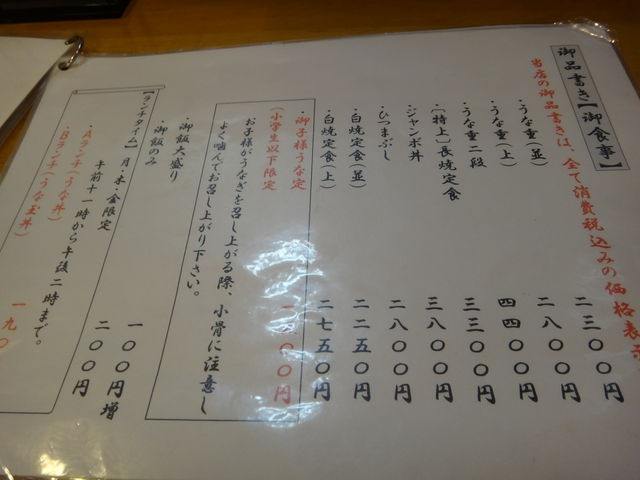 御品書き【御食事】
当店の御品書きは、全て消費税込みの価格表示
・うな重（並） 二三〇〇円
・うな重（上） 二八〇〇円
・うな重二段 四四〇〇円
・（特上）長焼定食 三三〇〇円
・ジャンボ丼 三八〇〇円
・ひつまぶし 二八〇〇円
・白焼定食（並） 二二五〇円
・白焼定食（上） 二七五〇円
・御子様うな定
（小学生以下限定） 〇〇円
お子様がうなぎを召し上がる際、小骨に注意し
よく噛んでお召し上がり下さい。
・御飯大盛り 一〇〇円増
・御飯のみ 二〇〇円
【ランチタイム】月・木・金限定
午前十一時から午後二時まで。
・Aランチ（うな丼） 一九〇
・Bランチ（うな玉丼）